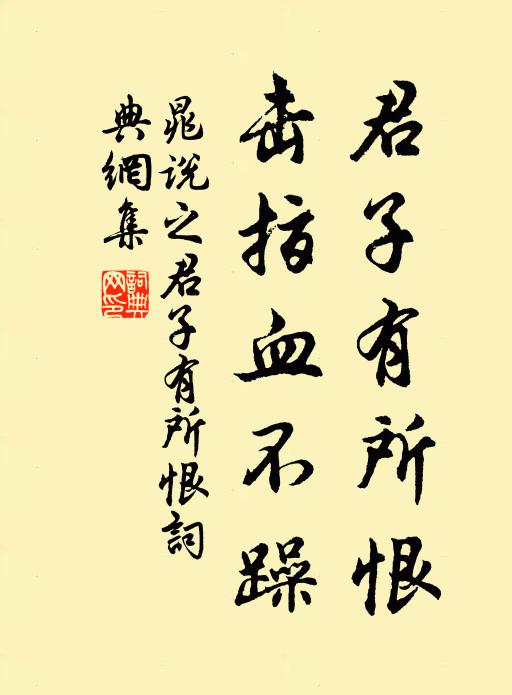 君子有所恨
击指血不躁
晁說之君子有所恨詞
典網集
詞典
网印